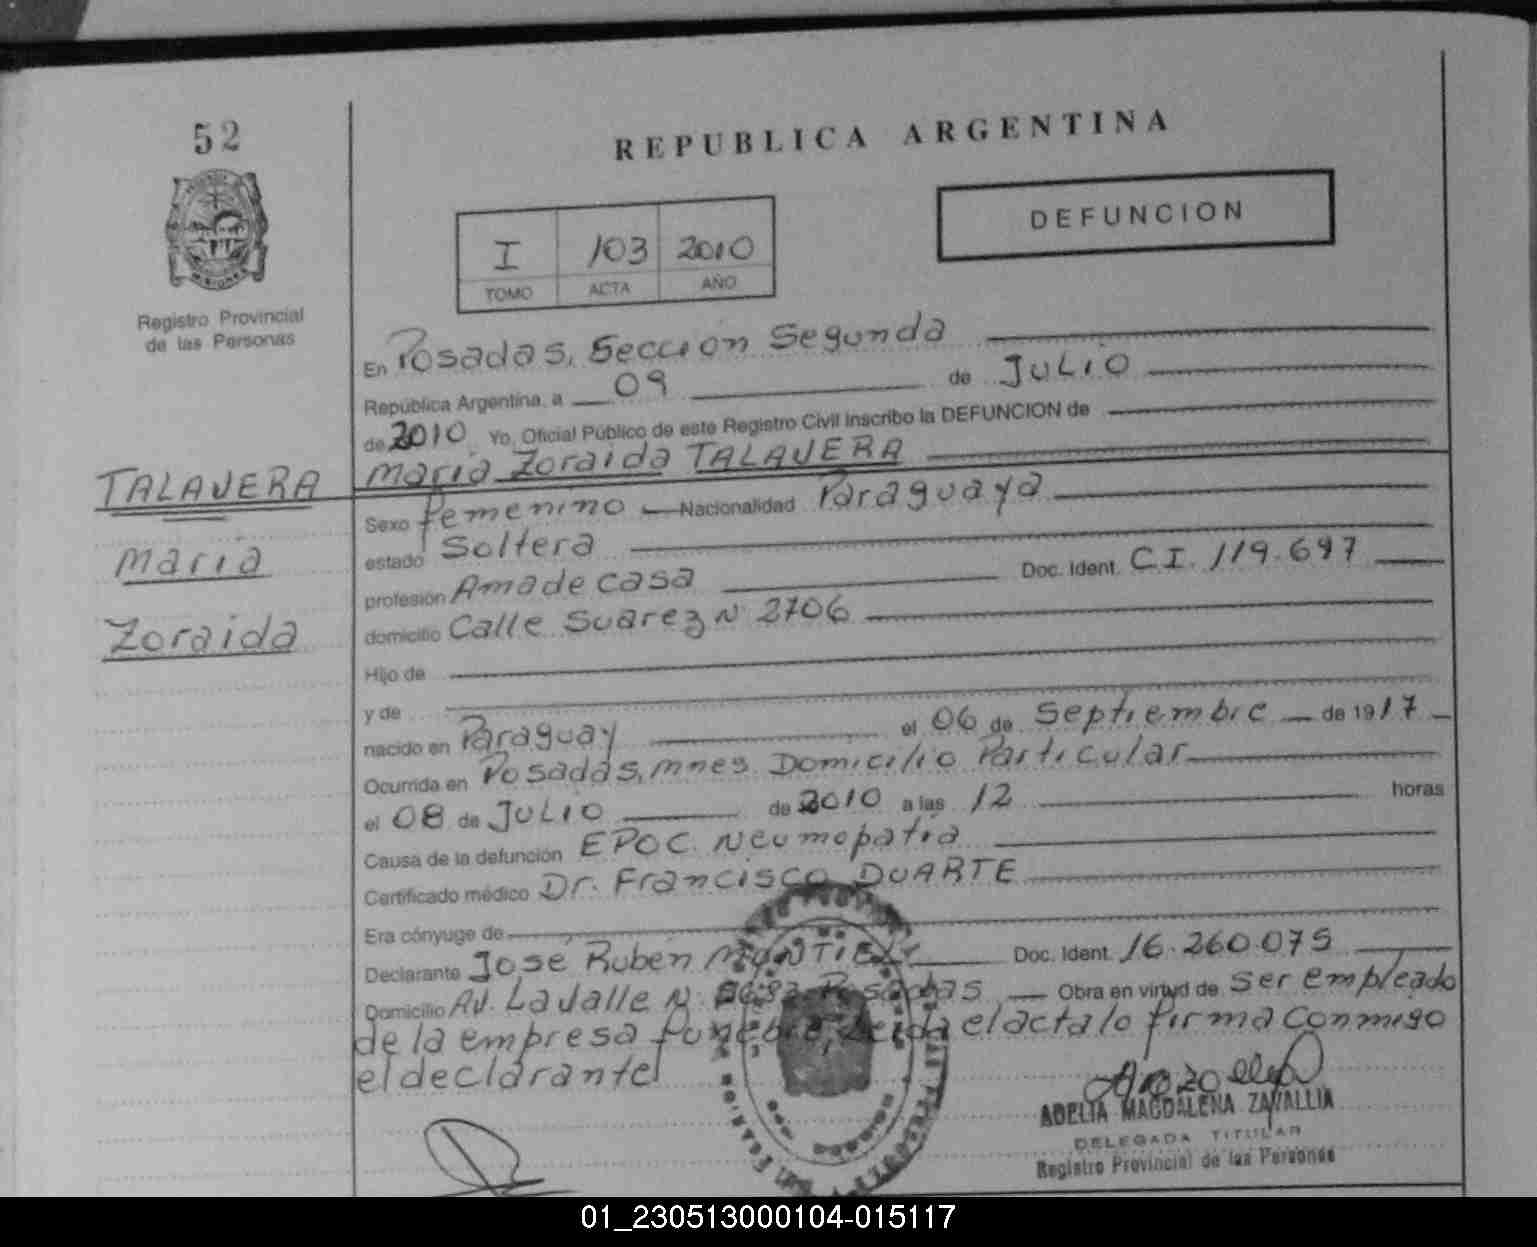 52
REPUBLICA ARGENTINA
DEFUNCION
I 103 2010
TOMO ACTA AÑO
Registro Provincial
de las Personas
En Posadas, Sección Segunda
República Argentina, a 09 de JULIO
de 2010 Yo, Oficial Público de este Registro Civil inscribo la DEFUNCION de
Maria Zoraida TALAVERA
TALAVERA
Maria
Zoraida
Sexo Femenino Nacionalidad Paraguaya
estado Soltera
profesión Ama de casa Doc. Ident. C.I. 119.697
domicilio Calle Suarez N 2706
Hijo de
y de
nacido en Paraguay el 06 de Septiembre de 1917
Ocurrida en Posadas, Mnes Domicilio Particular
el 08 de JULIO de 2010 a las 12 horas
Causa de la defunción EPOC Neumopatia
Certificado médico Dr. Francisco DUARTE
Era cónyuge de
Declarante Jose Ruben MONTIEL Doc. Ident. 16.260.075
Domicilio AV. Lavalle N Posadas Obra en virtud de Ser empleado
de la empresa funebre, Leida el acta lo firma conmigo
el declarante
ADELIA MAGDALENA ZAVALLIA
DELEGADA TITULAR
Registro Provincial de las Personas
01_230513000104-015117